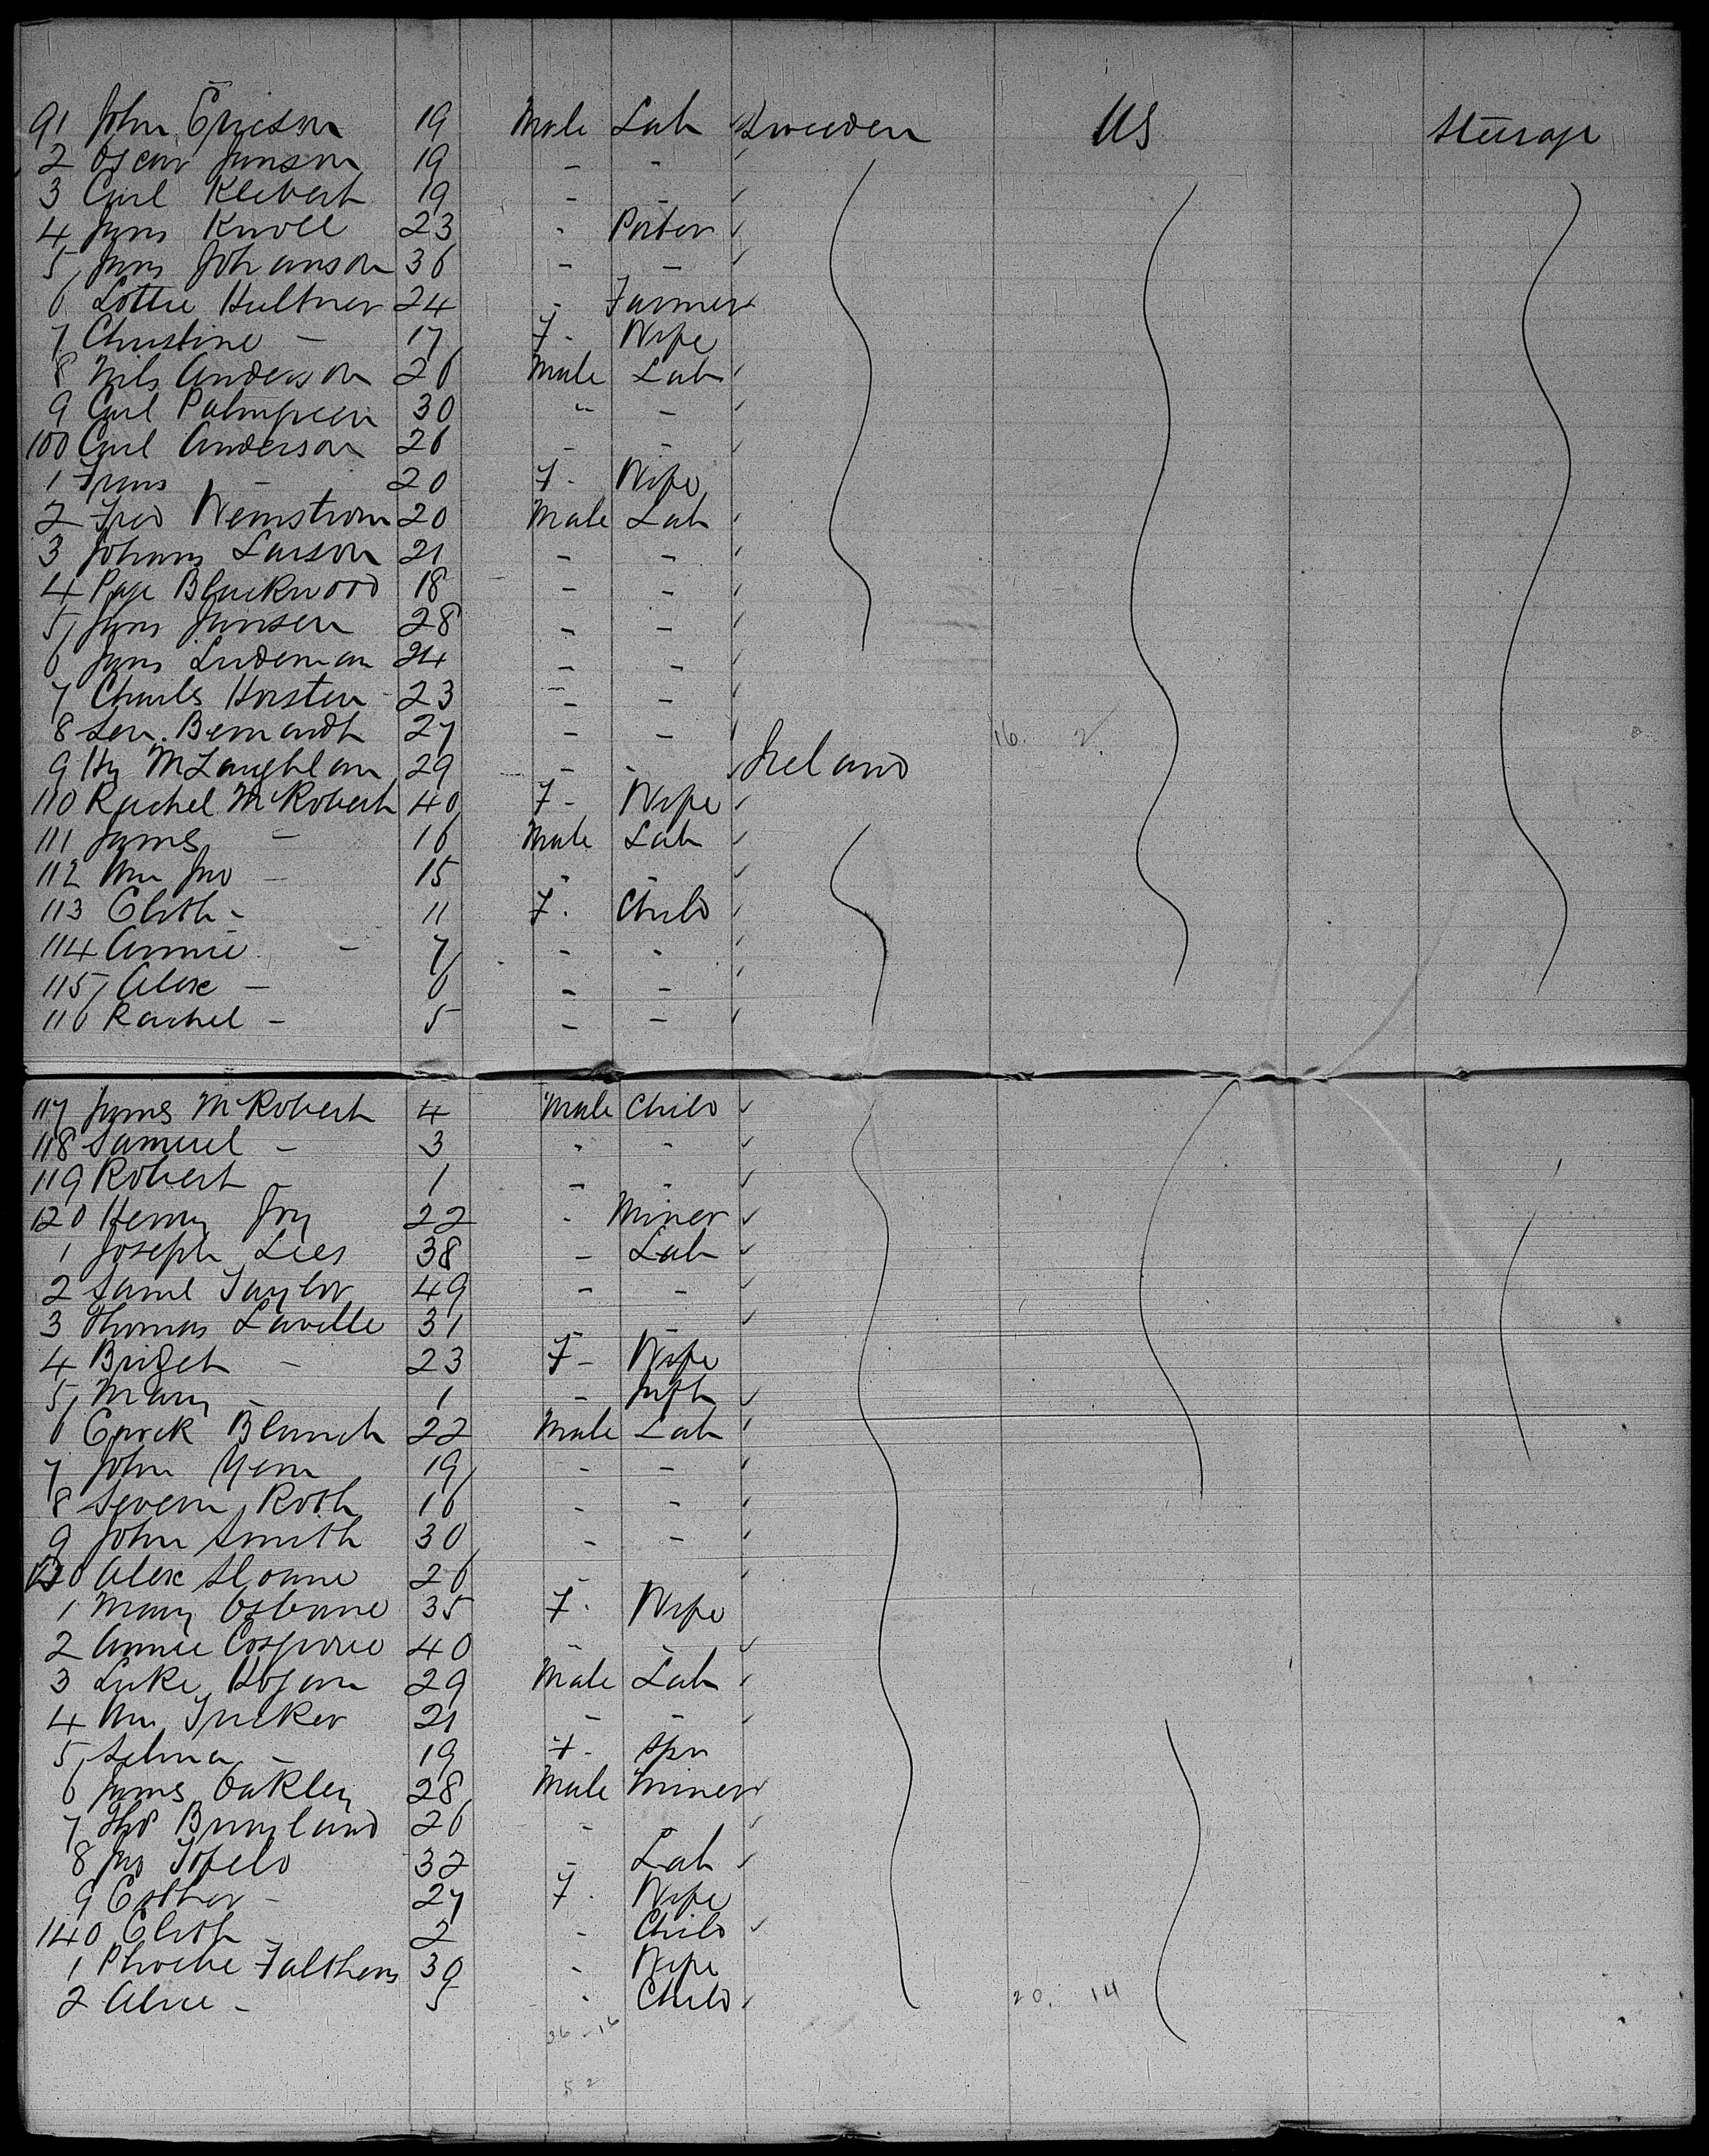 91 John Ericson 19 Male Lab Sweeden US Steerage
2 Oscar Janson 19 - -
3 Carl Klebert 19 - -
4 Jams Knoll 23 - Porter
5 Jams Johanson 36 - -
6 Lottie Hultner 24 - Farmer
7 Christine - 17 F - Wife
8 Nils Anderson 26 Male Lab
9 Carl Palmgreen 30 " -
100 Carl Anderson 26 - -
1 Frans - 20 F - Wife
2 Fred Wernstrom 20 Male Lab
3 Johans Larson 21 - -
4 Page Blackwood 18 - -
5 Jams Jansen 28 - -
6 Jams Ludeman 24 - -
7 Charles Horsten 23 - -
8 Bernardt 27 - - 16. 2.
9 Hy McLaughlan 29 - - Ireland
110 Rachel McRobert 40 F - Wife
111 James - 16 Male Lab
112 Wm Jno - 15 - -
113 Elizth - 11 F. Child
114 Annie - 7 - -
115 Alex - 6 - -
116 Rachel - 5 - -
117 James McRobert 4 Male Child
118 Samuel - 3 - -
119 Robert - 1 - -
120 Henry Joy 22 - Miner
1 Joseph Lees 38 - Lab
2 Saml Taylor 49 - -
3 Thomas Lavelle 31 - -
4 Bridget - 23 F - Wife
5 Mary - 1 - Inft
6 Blanch 22 Male Lab
7 John 19 - -
8 Severn Roth 16 - -
9 John Smith 30 - -
130 Alex Sloane 26 -
1 Mary Osborne 35 F. Wife
2 Annie 40 - -
3 Luke Hogan 29 Male Lab
4 Wm Tucker 21 - -
5 Selina - 19 F. Spr
6 James Oakley 28 Male Miner
7 Thos 26 - -
8 Jno 32 - Lab
9 Esther - 27 F. Wife
140 Elizth - 2 - Child
1 Phoebe 39 - Wife
2 Alice - 5 - Child 20. 14
36 - 16
52